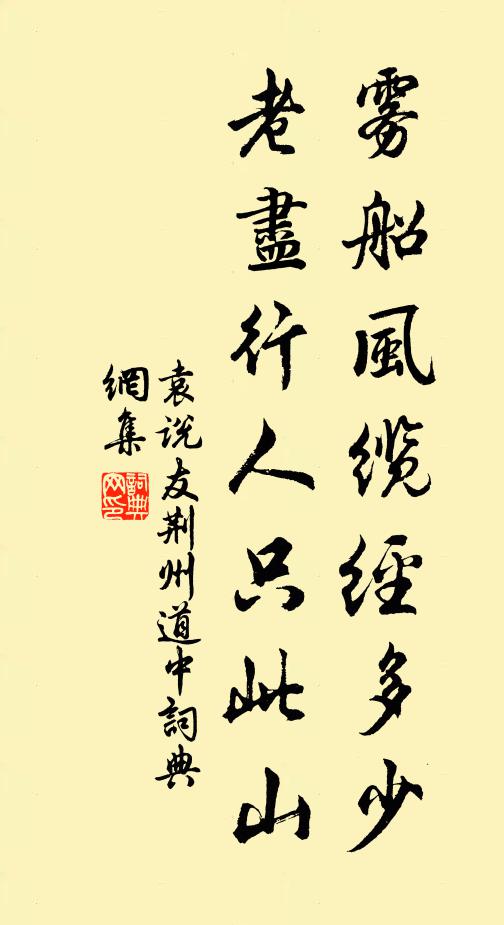 雾船風纜經多少
老盡行人只此山
袁说友荆州道中詞典
網集
詞典
网印